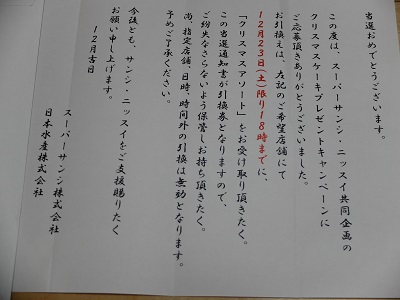 当選おめでとうございます。
この度は、スーパーサンシ・ニッスイ共同企画の
クリスマスケーキプレゼントキャンペーンに
ご応募頂きありがとうございました。
お引換えは、左記のご希望店舗にて
12月23日(土)限り18時までに、
「クリスマスアソート」をお受け取り頂きたく。
この当選通知書が引換券となりますので、
ご紛失なさらないよう保管しお持ち頂きたく。
尚、指定店舗、日時、時間外の引換は無効となります。
予めご了承ください。
今後とも、サンシ・ニッスイをご支援賜りたく
お願い申し上げます。
12月吉日
スーパーサンシ株式会社
日本水産株式会社